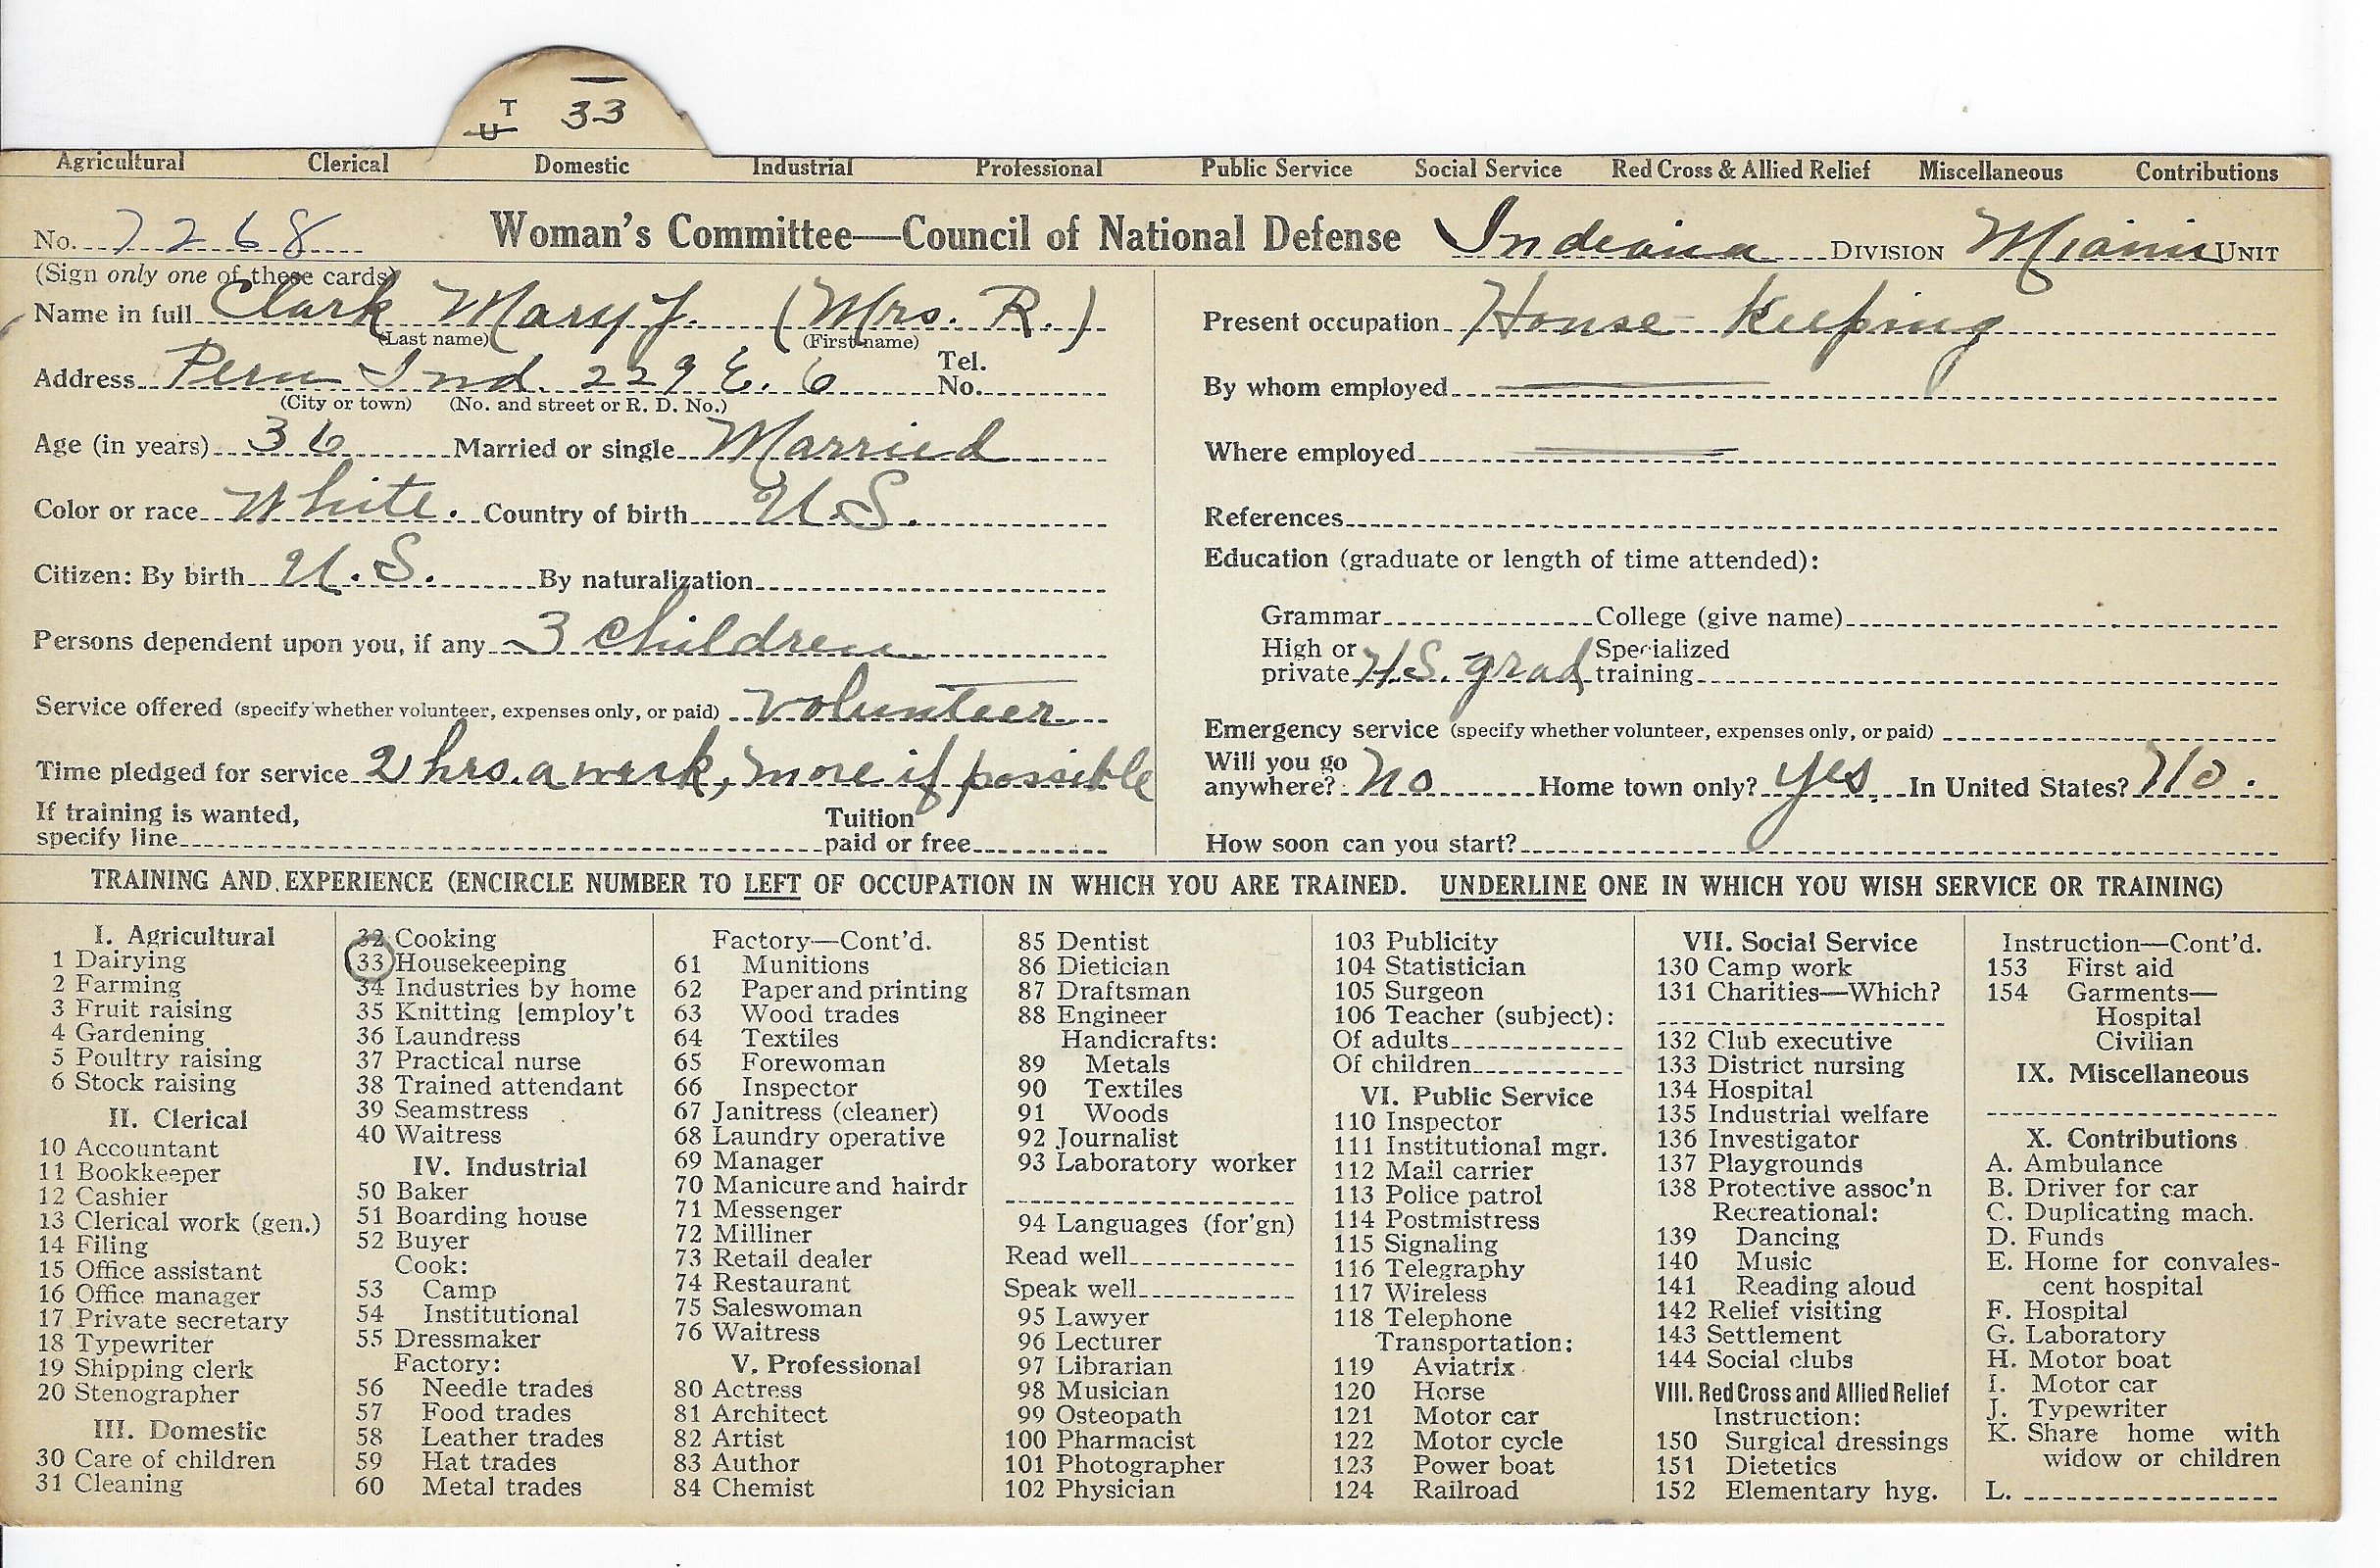 T
U 33
Agricultural Clerical Domestic Industrial Professional Public Service Social Service Red Cross & Allied Relief Miscellaneous Contributions
No. 7268 Woman's Committee—Council of National Defense Indiana DIVISION Miami UNIT
(Sign only one of these cards)
Name in full Clark Mary J. (Mrs. R.)
(Last name) (First name)
Address Peru Ind. 229 E. 6 Tel. No.
(City or town) (No. and street or R. D. No.)
Age (in years) 36 Married or single Married
Color or race White. Country of birth U.S.
Citizen: By birth U.S. By naturalization
Persons dependent upon you, if any 3 children
Service offered (specify whether volunteer, expenses only, or paid) volunteer
Time pledged for service 2 hrs. a week, more if possible
If training is wanted, specify line Tuition paid or free
Present occupation House keeping
By whom employed
Where employed
References
Education (graduate or length of time attended):
Grammar College (give name)
High or private H.S. grad Specialized training
Emergency service (specify whether volunteer, expenses only, or paid)
Will you go anywhere? No Home town only? yes. In United States? No.
How soon can you start?
TRAINING AND EXPERIENCE (ENCIRCLE NUMBER TO LEFT OF OCCUPATION IN WHICH YOU ARE TRAINED. UNDERLINE ONE IN WHICH YOU WISH SERVICE OR TRAINING)
I. Agricultural
1 Dairying
2 Farming
3 Fruit raising
4 Gardening
5 Poultry raising
6 Stock raising
II. Clerical
10 Accountant
11 Bookkeeper
12 Cashier
13 Clerical work (gen.)
14 Filing
15 Office assistant
16 Office manager
17 Private secretary
18 Typewriter
19 Shipping clerk
20 Stenographer
III. Domestic
30 Care of children
31 Cleaning
32 Cooking
33 Housekeeping
34 Industries by home
35 Knitting [employ't
36 Laundress
37 Practical nurse
38 Trained attendant
39 Seamstress
40 Waitress
IV. Industrial
50 Baker
51 Boarding house
52 Buyer
Cook:
53 Camp
54 Institutional
55 Dressmaker
Factory:
56 Needle trades
57 Food trades
58 Leather trades
59 Hat trades
60 Metal trades
Factory—Cont'd.
61 Munitions
62 Paper and printing
63 Wood trades
64 Textiles
65 Forewoman
66 Inspector
67 Janitress (cleaner)
68 Laundry operative
69 Manager
70 Manicure and hairdr
71 Messenger
72 Milliner
73 Retail dealer
74 Restaurant
75 Saleswoman
76 Waitress
V. Professional
80 Actress
81 Architect
82 Artist
83 Author
84 Chemist
85 Dentist
86 Dietician
87 Draftsman
88 Engineer
Handicrafts:
89 Metals
90 Textiles
91 Woods
92 Journalist
93 Laboratory worker
94 Languages (for'gn)
Read well
Speak well
95 Lawyer
96 Lecturer
97 Librarian
98 Musician
99 Osteopath
100 Pharmacist
101 Photographer
102 Physician
103 Publicity
104 Statistician
105 Surgeon
106 Teacher (subject):
Of adults
Of children
VI. Public Service
110 Inspector
111 Institutional mgr.
112 Mail carrier
113 Police patrol
114 Postmistress
115 Signaling
116 Telegraphy
117 Wireless
118 Telephone
Transportation:
119 Aviatrix
120 Horse
121 Motor car
122 Motor cycle
123 Power boat
124 Railroad
VII. Social Service
130 Camp work
131 Charities—Which?
132 Club executive
133 District nursing
134 Hospital
135 Industrial welfare
136 Investigator
137 Playgrounds
138 Protective assoc'n
Recreational:
139 Dancing
140 Music
141 Reading aloud
142 Relief visiting
143 Settlement
144 Social clubs
VIII. Red Cross and Allied Relief
Instruction:
150 Surgical dressings
151 Dietetics
152 Elementary hyg.
Instruction—Cont'd.
153 First aid
154 Garments—
Hospital
Civilian
IX. Miscellaneous
X. Contributions
A. Ambulance
B. Driver for car
C. Duplicating mach.
D. Funds
E. Home for convales-
cent hospital
F. Hospital
G. Laboratory
H. Motor boat
I. Motor car
J. Typewriter
K. Share home with
widow or children
L.